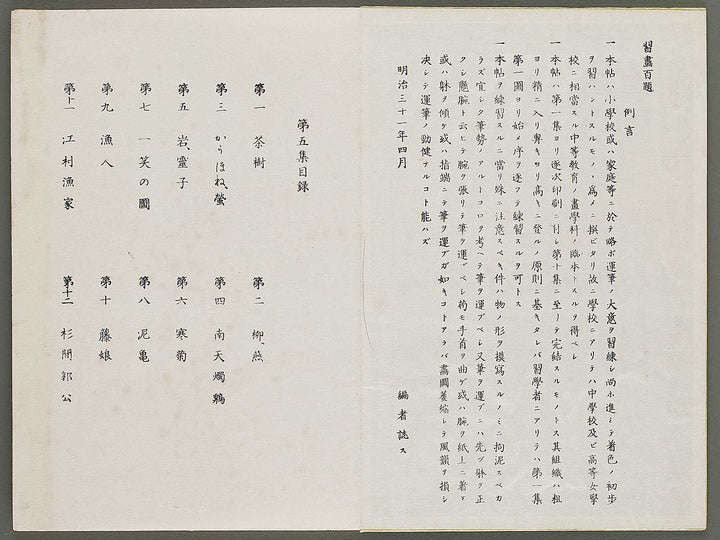 習畫百題
例言
一 本帖ハ小學校或ハ家庭等ニ於テ略ボ運筆ノ大意ヲ習練シ尚ホ進ミテ着色ノ初步
ヲ習ハントスルモノヽ爲メニ撰ビタリ故ニ學校ニアリテハ中學校及ビ高等女學
校ニ相當スル中等教育ノ畫學科ノ臨本トスルヲ得ベシ
一 本帖ハ第一集ヨリ逐次印刷ニ付シ第十集ニ至リテ完結スルモノトス其組織ハ粗
ヨリ精ニ入リ卑キヨリ高キニ登ルノ原則ニ基キタレバ習學者ニアリテハ第一集
第一圖ヨリ始メ序ヲ逐フテ練習スルヲ可トス
一 本帖ヲ練習スルニ當リ殊ニ注意スベキ件ハ物ノ形ヲ摸寫スルノミニ拘泥スベカ
ラズ宜シク筆勢ノアルトコロヲ考ヘテ筆ヲ運ブベシ又筆ヲ運ブニハ先ヅ躰ヲ正
クシ懸腕ト云ヒテ腕ヲ張リテ筆ヲ運ブベシ苟モ手首ヲ曲ゲ或ハ腕ヲ紙上ニ着ケ
或ハ躰ヲ傾ケ或ハ指端ニテ筆ヲ運ブガ如キコトアラバ畫圖萎縮シテ風韻ヲ損シ
决シテ運筆ノ勁健アルコト能ハズ
明治三十一年四月
編者誌ス
第五集目録
第一 茶樹
第二 柳、燕
第三 かうほね、螢
第四 南天燭、鶫
第五 岩、靈子
第六 寒菊
第七 一笑の圖
第八 泥亀
第九 漁人
第十 藤娘
第十一 江村漁家
第十二 杉間郭公